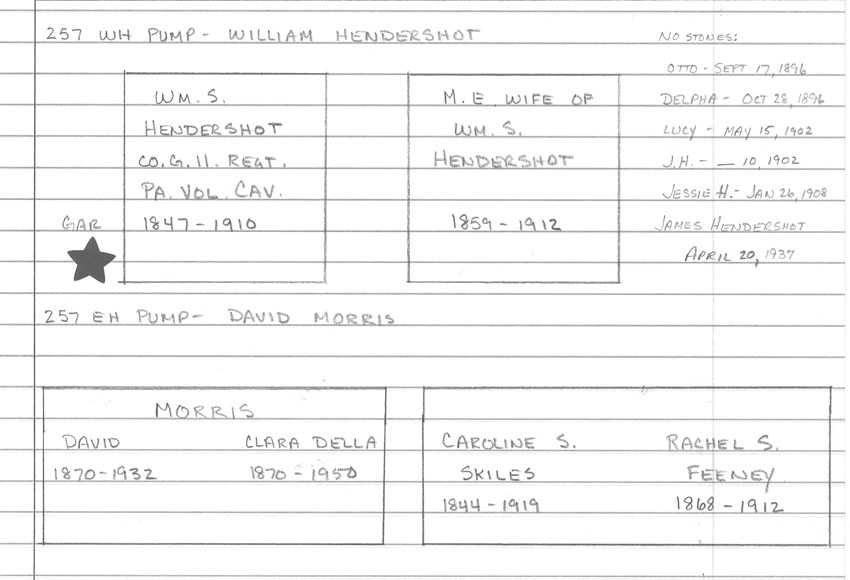 257 WH PUMP - WILLIAM HENDERSHOT
WM. S.
HENDERSHOT
CO. G. 11. REGT.
PA. VOL. CAV.
GAR
1847 - 1910
M. E. WIFE OF
WM. S.
HENDERSHOT
1859 - 1912
NO STONES:
OTTO - SEPT 17, 1896
DELPHA - OCT 28, 1896
LUCY - MAY 15, 1902
J.H. - __ 10, 1902
JESSIE H. - JAN 26, 1908
JAMES HENDERSHOT
APRIL 20, 1937
257 EH PUMP - DAVID MORRIS
MORRIS
DAVID CLARA DELLA
1870 - 1932 1870 - 1950
CAROLINE S. RACHEL S.
SKILES FEENEY
1844 - 1919 1868 - 1912